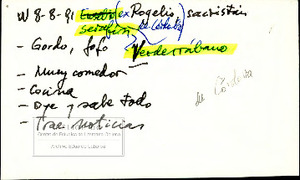 W 8-8-91 Eusebio (ex Rogelio) sacristán
serafín de Córdoba
- Gordo, fofo Verderrábano
- Muy comedor
- Cocina
- Oye y sabe todo
- Trae noticias
de Córdova